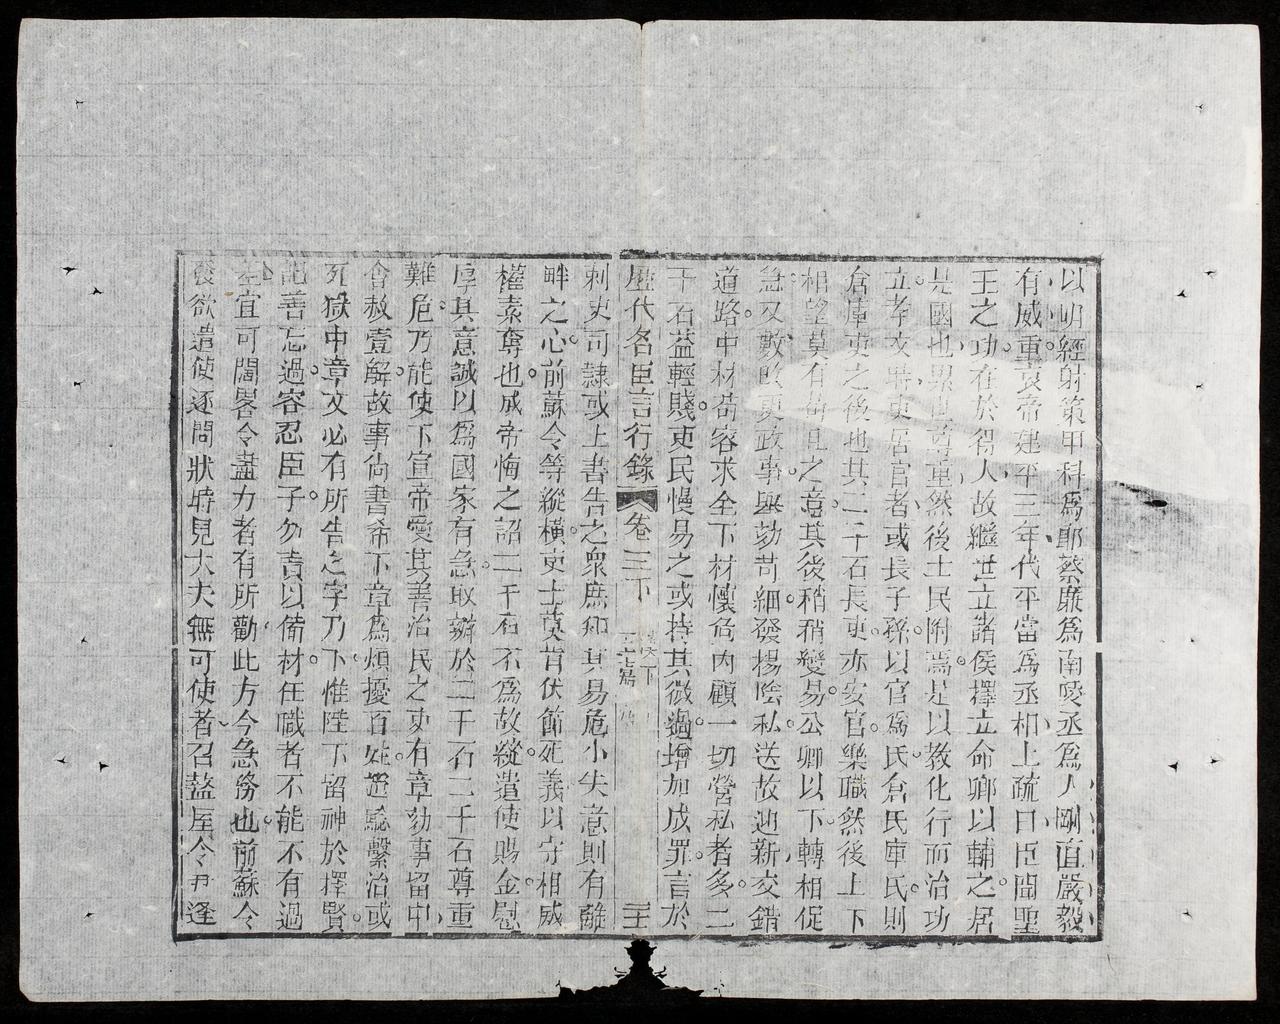 以明經射策甲科爲郎蔡廉爲南陵丞爲人剛直嚴毅
有威重哀帝建平三年代平當爲丞相上疏曰臣聞聖
王之功在於得人故繼世立諸侯擇立命卿以輔之居
是國也累世尊重然後士民附焉是以教化行而治功
立孝文時吏居官者或長子孫以官爲氏倉氏庫氏則
倉庫吏之後也其二千石長吏亦安官樂職然後上下
相望莫有苟且之意其後稍稍變易公卿以下轉相促
急又數改更政事舉劾苛細發揚陰私送故迎新交錯
道路中材苟容求全下材懷危內顧一切營私者多二
千石益輕賤吏民慢易之或持其微過增加成罪言於
歷代名臣言行錄 卷三下 三十
刺史司隷或上書告之衆庶知其易危小失意則有離
畔之心前蘇令等縱橫吏士莫肯伏節死義以守相威
權素奪也成帝悔之詔二千石不爲故縱遣使賜金慰
厚其意誠以爲國家有急取辦於二千石二千石尊重
難危乃能使下宣帝愛其善治民之吏有章劾事留中
會赦壹解故事尚書希下章爲煩擾百姓證驗繫治或
死獄中章文必有所告之字乃下惟陛下留神於擇賢
記善忘過容忍臣子勿責以備材任職者不能不有過
差宜可闊畧令盡力者有所勸此方今急務也前蘇令
發欲遣使逐問狀時見大夫無可使者召盩厔令尹逢